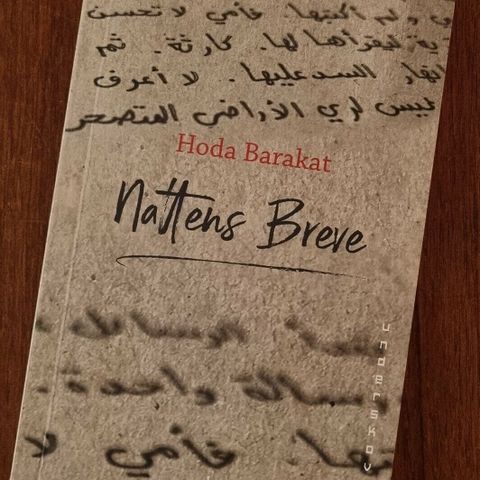 ولم أكتبها. فأمي لا تحسن
لتقرأها لها. كارثة. ثم
انهار السد عليها. لا أعرف
ليس لري الأراضي المتصحر
Hoda Barakat
Nattens Breve
الرسائل
رسالة واحدة.
فأمي لا
underskov